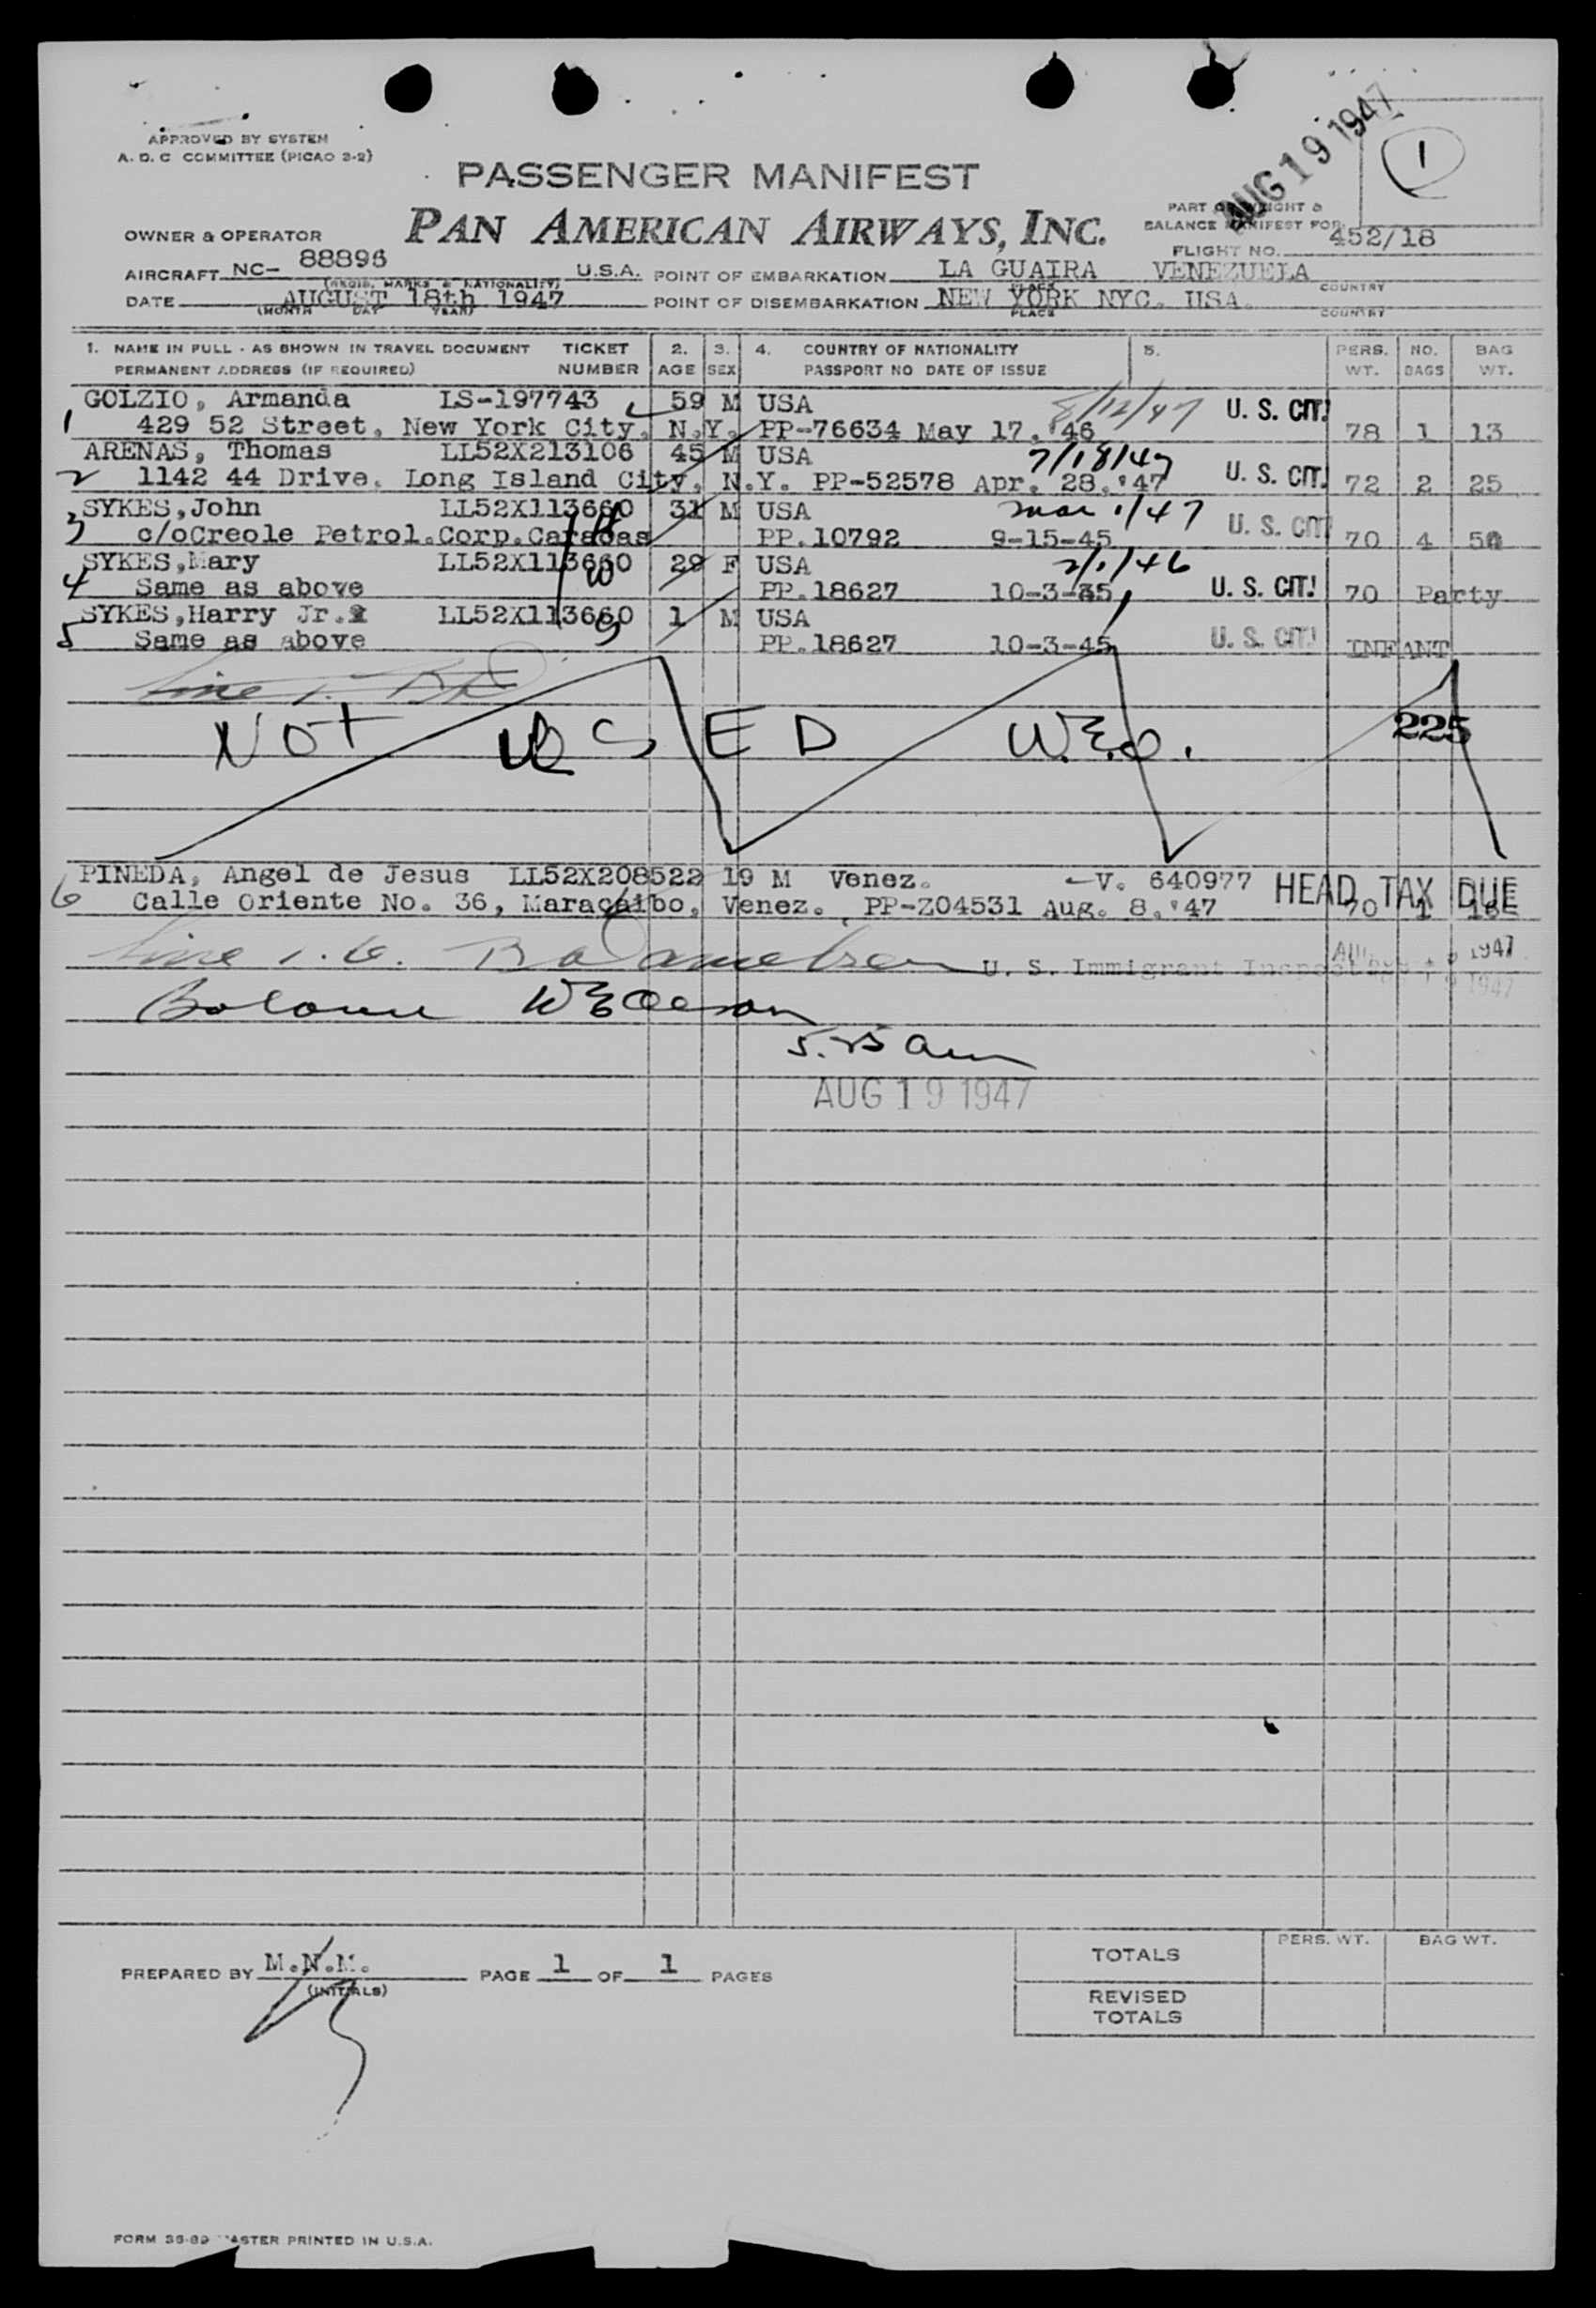 AUG 19 1947
1
APPROVED BY SYSTEM
A. D. C COMMITTEE (PICAO 3-2)
PASSENGER MANIFEST
PAN AMERICAN AIRWAYS, INC.
PART OF WEIGHT &
BALANCE MANIFEST FOR
FLIGHT NO. 452/18
OWNER & OPERATOR
AIRCRAFT NC- 88896 U.S.A. POINT OF EMBARKATION LA GUAIRA VENEZUELA
(REGIS. MARKS & NATIONALITY) PLACE COUNTRY
DATE AUGUST 18th 1947 POINT OF DISEMBARKATION NEW YORK NYC. USA.
(MONTH DAY YEAR) PLACE COUNTRY
1. NAME IN FULL - AS SHOWN IN TRAVEL DOCUMENT TICKET 2. 3. 4. COUNTRY OF NATIONALITY 5. PERS. NO. BAG
PERMANENT ADDRESS (IF REQUIRED) NUMBER AGE SEX PASSPORT NO DATE OF ISSUE WT. BAGS WT.
GOLZIO, Armanda LS-197743 59 M USA 8/12/47 U. S. CIT.
1 429 52 Street, New York City, N.Y. PP-76634 May 17,'46 78 1 13
ARENAS, Thomas LL52X213106 45 M USA 7/18/47 U. S. CIT.
2 1142 44 Drive, Long Island City, N.Y. PP-52578 Apr. 28,'47 72 2 25
SYKES,John LL52X113660 31 M USA mar 1/47 U. S. CIT
3 c/oCreole Petrol.Corp.Caracas PP.10792 9-15-45 70 4 50
SYKES,Mary LL52X113660 29 F USA 2/1/46 U. S. CIT!
4 Same as above PP.18627 10-3-45 70 Party
SYKES,Harry Jr. LL52X113660 1 M USA
5 Same as above PP.18627 10-3-45 U. S. CIT! INFANT
NOT USED W.E.O. 225
PINEDA, Angel de Jesus LL52X208522 19 M Venez. V. 640977 HEAD TAX DUE
6 Calle Oriente No. 36, Maracaibo, Venez. PP-Z04531 Aug. 8,'47 70 1 16
line 1. 6. U. S. Immigrant Inspector 1947
1947
AUG 19 1947
PREPARED BY M.N.M. PAGE 1 OF 1 PAGES
(INITIALS)
PERS. WT. BAG WT.
TOTALS
REVISED
TOTALS
FORM 36-89 MASTER PRINTED IN U.S.A.